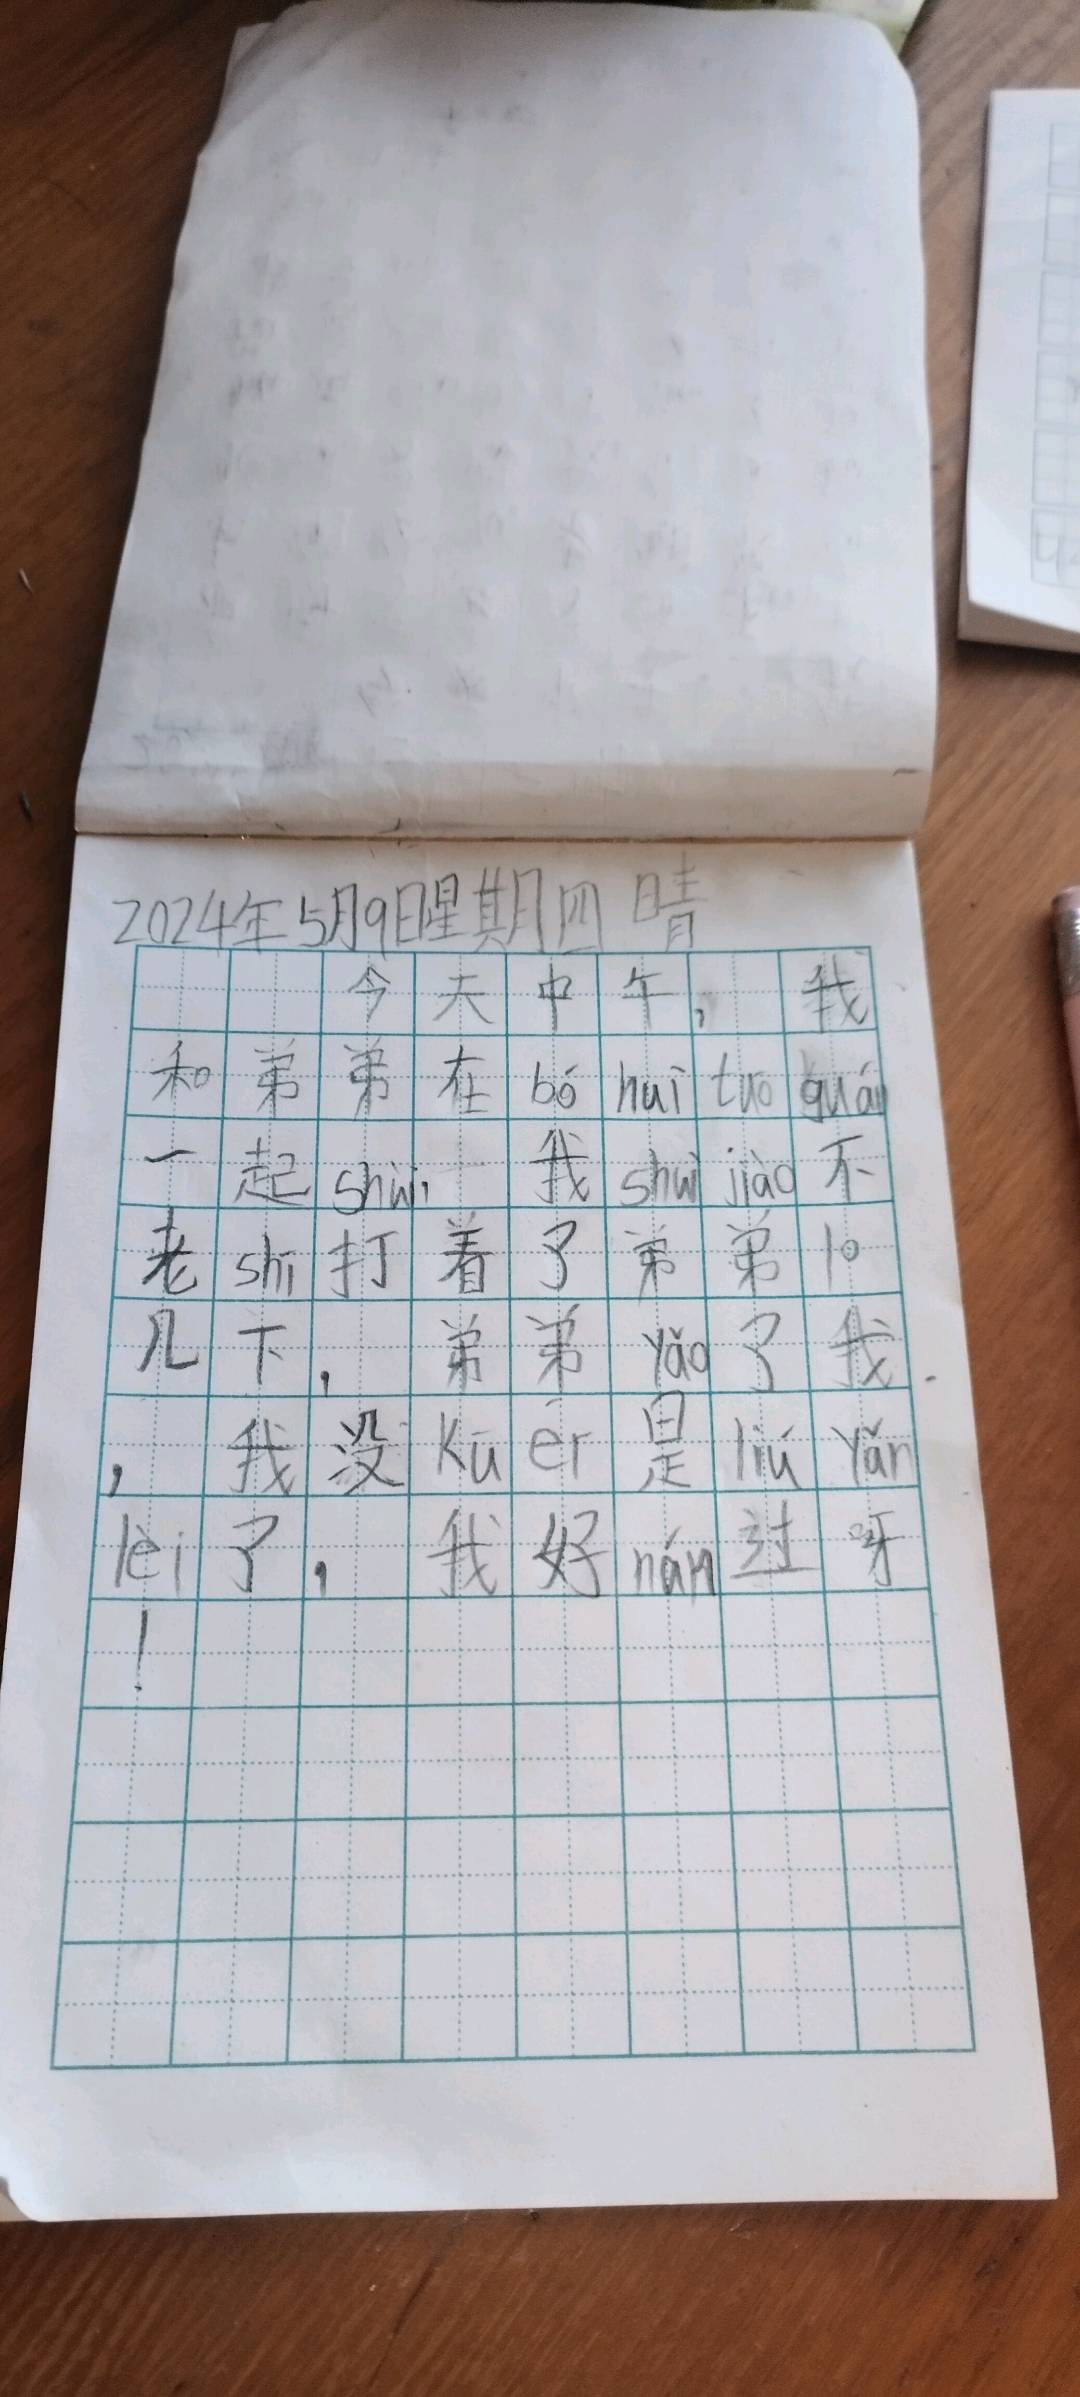 2024年5月9日星期四 晴
今天中午,我
和弟弟在bó huì tuō guán
一起shùi 我shuì jiào不
老shí打着了弟弟10
几下,弟弟yǎo了我
,我没Kū ér是liú yǎn
lèi了,我好nán过呀
!